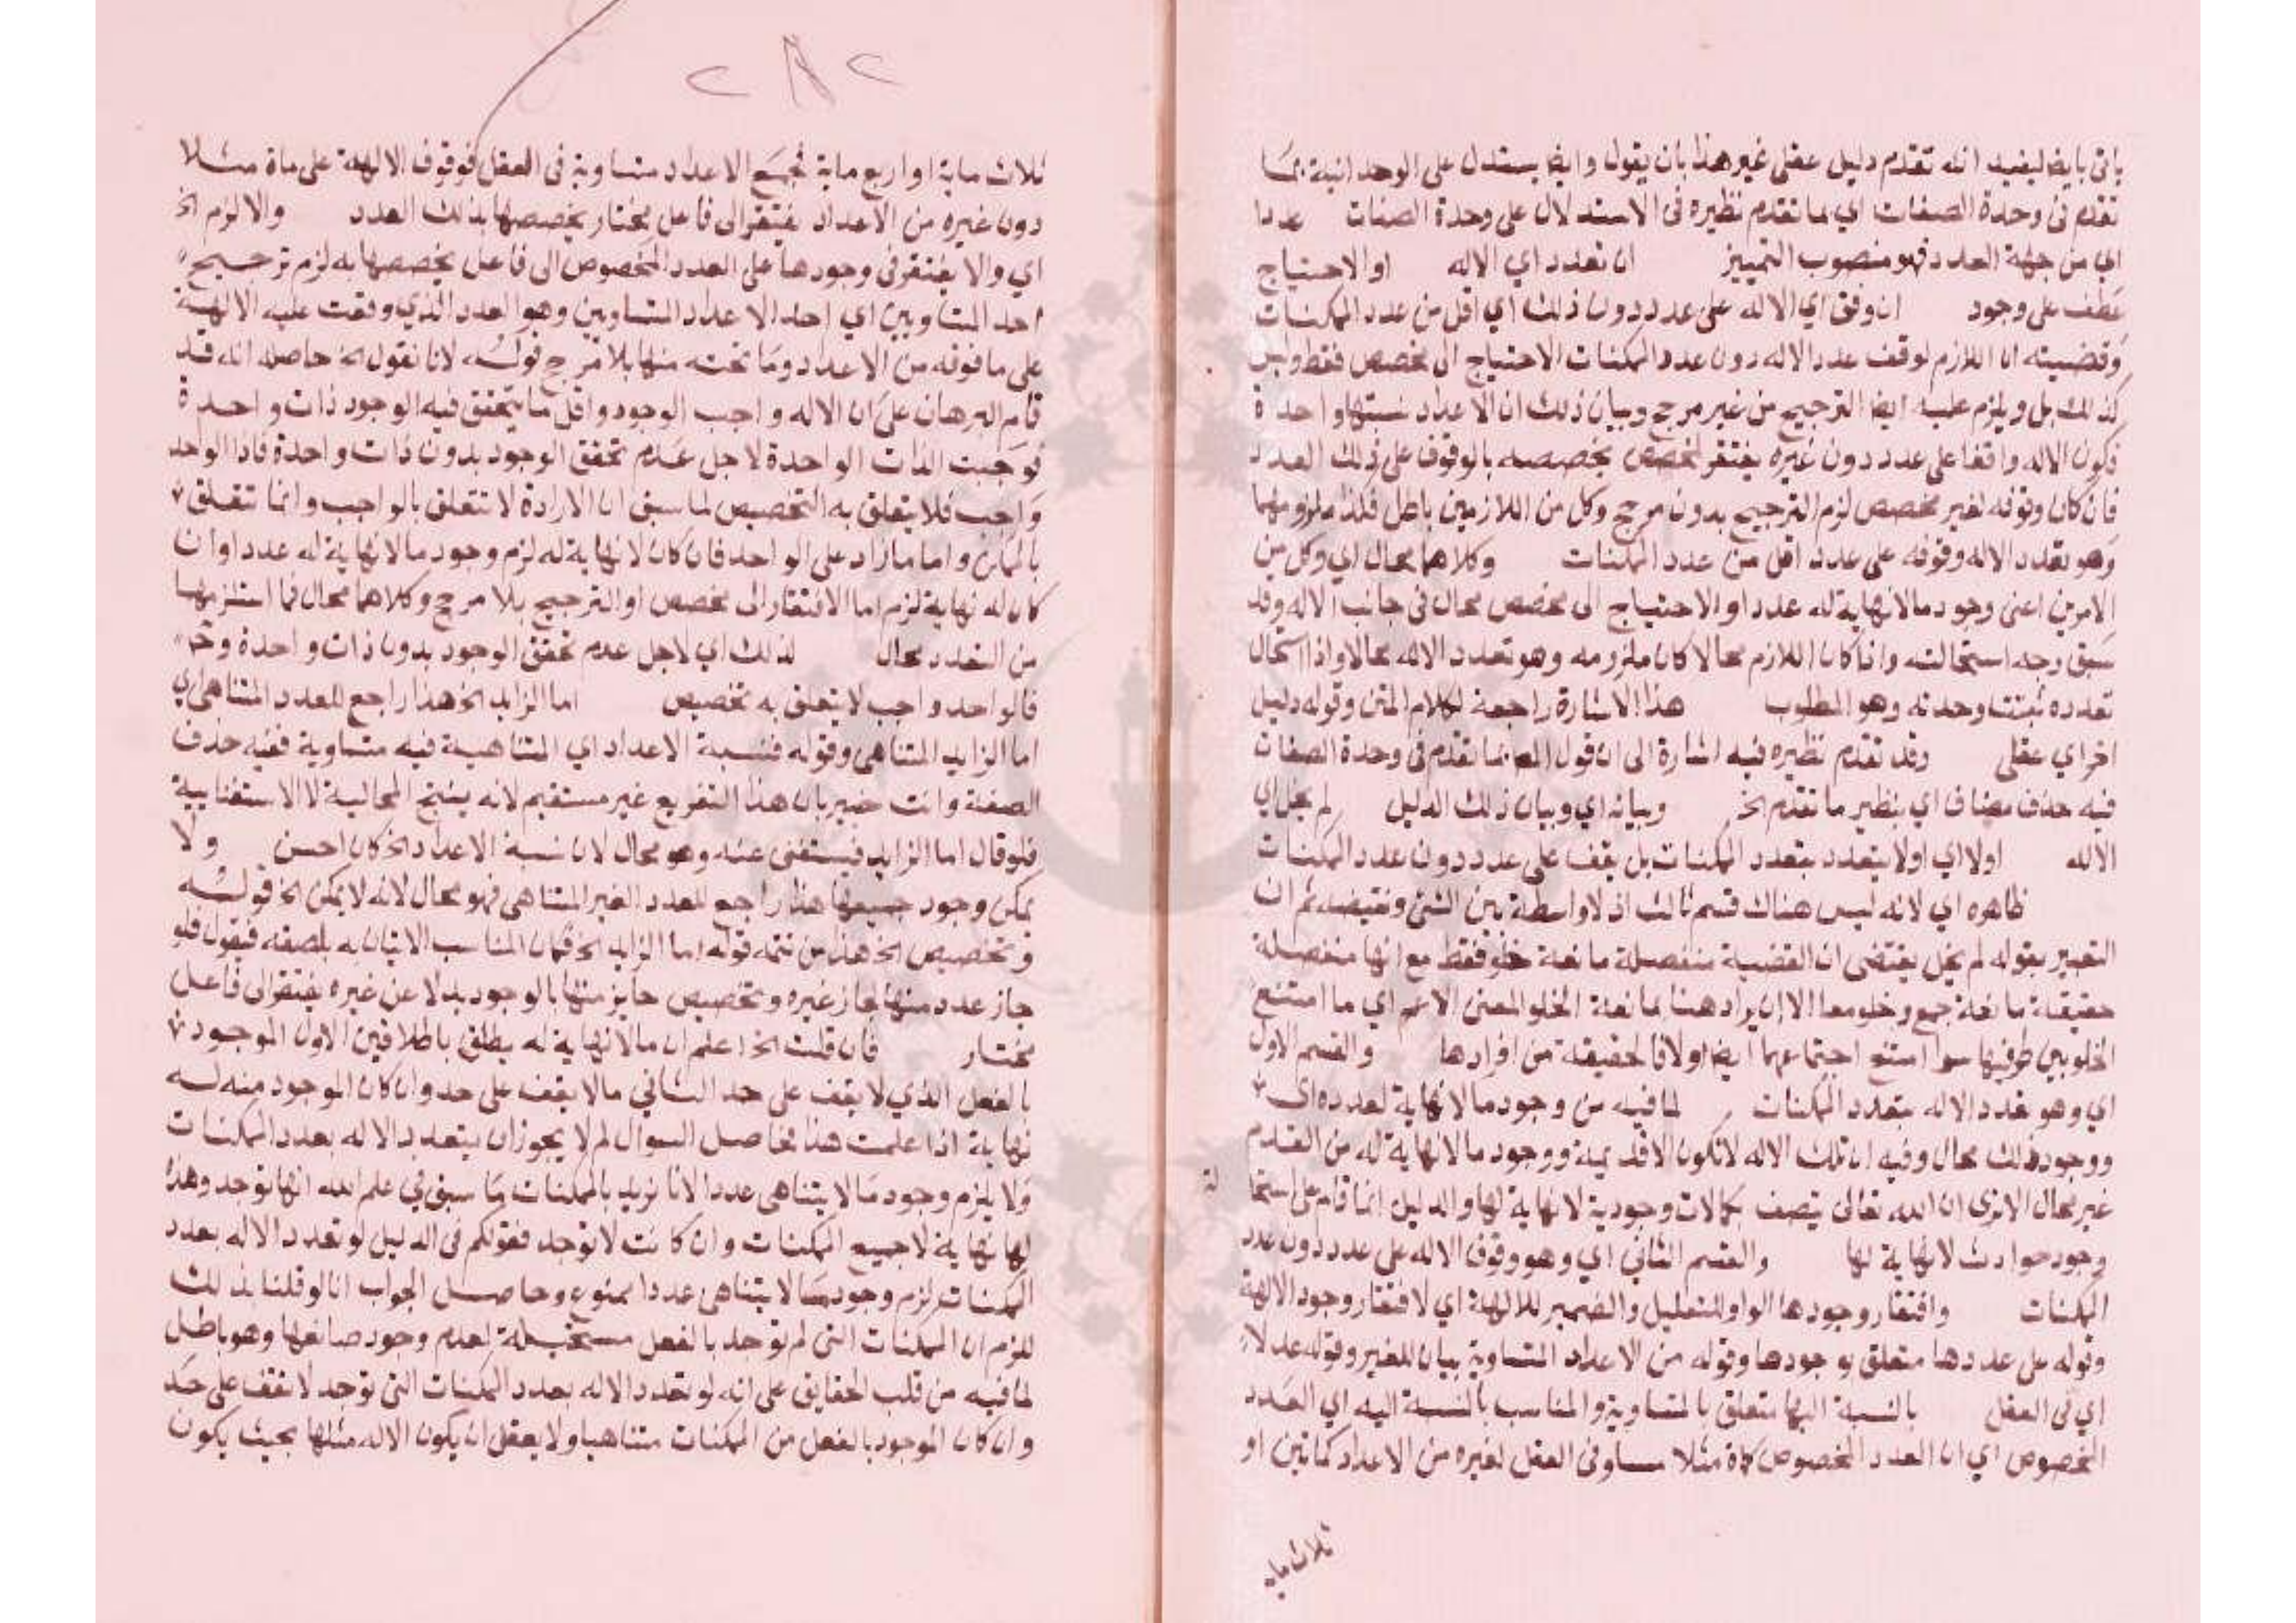 ياتى بايضا ليفيد انه تقدم دليل عقلى غير هذا بان يقول وايضا يستدل على الوحدانية بما
تقدم فى وحدة الصفات اي لما تقدم نظيره فى الاستدلال على وحدة الصفات عددا
اي من جهة العدد فهو منصوب التمييز ان تعدد اي الاله او الاحتياج
عطف على وجود ان وقف اي الاله على عدد دون ذلك اي اقل من عدد الممكنات
وقضيته ان اللازم لوقف عدد الاله دون عدد الممكنات الاحتياج الى مخصص فقط وليس
كذلك بل ويلزم عليه ايضا الترجيح من غير مرجح وبيان ذلك ان الاعداد نسبتها واحدة
فكون الاله واقفا على عدد دون غيره يفتقر لمخصص يخصصه بالوقوف على ذلك العدد
فان كان وقوفه لغير مخصص لزم الترجيح بدون مرجح وكل من اللازمين باطل فكذا ملزومهما
وهو تعدد الاله وقوفه على عدد اقل من عدد الممكنات وكلاهما محال اي وكل من
الامرين اعنى وجود ما لا نهاية له عددا والاحتياج الى مخصص محال فى جانب الاله وقد
سبق وجه استحالته واذا كان اللازم محالا كان ملزومه وهو تعدد الاله محالا واذا استحال
تعدده ثبتت وحدته وهو المطلوب هذا الاشارة راجعة لكلام المتن وقوله دليل
اخر اي عقلى وقد تقدم نظيره فيه اشارة الى ان قول المص بما تقدم فى وحدة الصفات
فيه حذف مضاف اي بنظير ما تقدم الخ وبيانه اي وبيان ذلك الدليل لم يخل اي
الاله اولا اي اولا يتعدد بتعدد الممكنات بل يقف على عدد دون عدد الممكنات
ظاهره اي لانه ليس هناك قسم ثالث اذ لا واسطة بين الشئ ونقيضه ثم ان
التعبير بقوله لم يخل يقتضى ان القضية منفصلة مانعة خلو فقط مع انها منفصلة
حقيقية مانعة جمع وخلو معا الا ان يراد هنا بمانعة الخلو المعنى الاعم اي ما امتنع
الخلو بين طرفيها سوا امتنع اجتماعهما ايضا اولا فالحقيقة من افرادها والقسم الاول
اي وهو تعدد الاله بتعدد الممكنات لما فيه من وجود ما لا نهاية لعدده اي
ووجود ذلك محال وفيه ان تلك الاله لا تكون الا قديمة ووجود ما لا نهاية له من القدم
غير محال الا ترى ان الله تعالى يتصف بكمالات وجودية لا نهاية لها والدليل انما قام على استحا
لة
وجود حوادث لا نهاية لها والقسم الثاني اي وهو وقوف الاله على عدد دون عدد
الممكنات وافتقار وجودها الواو للتعليل والضمير للالهة اي لافتقار وجود الالهة
وقوله على عددها متعلق بوجودها وقوله من الاعداد المتساوية بيان للغير وقوله عدلا
اي فى العقل بالنسبة اليها متعلق بالمتساوية والمناسب بالنسبة اليه اي العدد
المخصوص اي ان العدد المخصوص كماة مثلا مساو فى العقل لغيره من الاعداد كماتين او
ثلاث ماية
٢٨٢
ثلاث ماية او اربع ماية فجميع الاعداد متساوية فى العقل فوقوف الالهة على ماة مثلا
دون غيره من الاعداد يفتقر الى فاعل مختار يخصصها بذلك العدد والا لزم الخ
اي والا يفتقر فى وجودها على العدد المخصوص الى فاعل يخصصها به لزم ترجيح
احد المتساويين اي احد الاعداد المتساويين وهو العدد الذي وقفت عليه الالهة
على ما فوقه من الاعداد وما تحته منها بلا مرجح قوله لانا نقول الخ حاصله انه قد
قام البرهان على ان الاله واجب الوجود واقل ما يتحقق فيه الوجود ذات واحدة
فوجبت الذات الواحدة لاجل عدم تحقق الوجود بدون ذات واحدة فاذا الواحد
واجب فلا يتعلق به التخصيص لما سبق ان الارادة لا تتعلق بالواجب وانما تتعلق
بالممكن واما ما زاد على الواحد فان كان لا نهاية له لزم وجود ما لا نهاية له عددا وان
كان له نهاية لزم اما الافتقار الى مخصص او الترجيح بلا مرجح وكلاهما محال فما استلزمهما
من التعدد محال لذلك اي لاجل عدم تحقق الوجود بدون ذات واحدة وح
فالواحد واجب لا يتعلق به تخصيص اما الزايد الخ هذا راجع للعدد المتناهى اي
اما الزايد المتناهى وقوله فنسبة الاعداد اي المتناهية فيه متساوية ففيه حذف
الصفة وانت خبير بان هذا التفريع غير مستقيم لانه ينتج المحالية لا الاستغنايية
فلو قال اما الزايد فيستغنى عنه وهو محال لان نسبة الاعداد الخ كان احسن ولا
يمكن وجود جميعها هذا راجع للعدد الغير المتناهى فهو محال لانه لا يمكن الخ قوله
وتخصيص الخ هذا من تتمة قوله اما الزايد الخ فكان المناسب الاتيان به بلصقه فيقول فلو
جاز عدد منها لجاز غيره وتخصيص جايز منها بالوجود بدلا عن غيره يفتقر الى فاعل
مختار فان قلت الخ اعلم ان ما لا نهاية له يطلق باطلاقين الاول الموجود
بالفعل الذي لا يقف على حد الثاني ما لا يقف على حد وان كان الموجود منه له
نهاية اذا علمت هذا فحاصل السوال لم لا يجوز ان يتعدد الاله بعدد الممكنات
ولا يلزم وجود ما لا يتناهى عددا لانا نريد بالممكنات ما سبق في علم الله انها توجد وهذه
لها نهاية لا جميع الممكنات وان كانت لا توجد فقولكم فى الدليل لو تعدد الاله بعدد
الممكنات لزم وجود ما لا يتناهى عددا ممنوع وحاصل الجواب انا لو قلنا بذلك
للزم ان الممكنات التى لم توجد بالفعل مستحيلة لعدم وجود صانعها وهو باطل
لما فيه من قلب الحقايق على انه لو تعدد الاله بعدد الممكنات التى توجد لا تقف على حد
وان كان الموجود بالفعل من الممكنات متناهيا ولا يعقل ان يكون الاله مثلها بحيث يكون